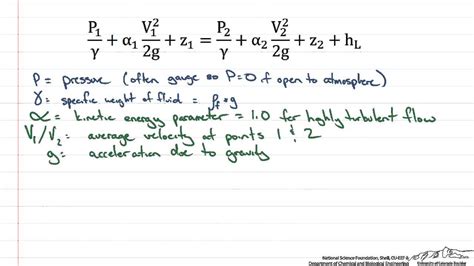 P₁/γ + α₁ V₁²/2g + z₁ = P₂/γ + α₂ V₂²/2g + z₂ + h_L
P = pressure (often gauge so P=0 if open to atmosphere)
γ = specific weight of fluid = ρf * g
α = kinetic energy parameter = 1.0 for highly turbulent flow
V₁/V₂ = average velocity at points 1 & 2
g = acceleration due to gravity
National Science Foundation, Shell, CU-EEF &
Department of Chemical and Biological Engineering University of Colorado Boulder